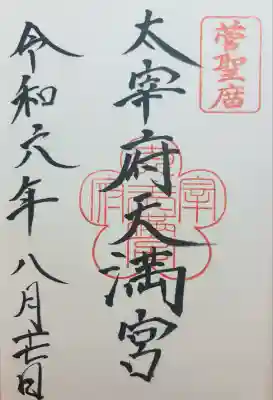 菅聖庿
太宰府天満宮
令和六年 八月 日